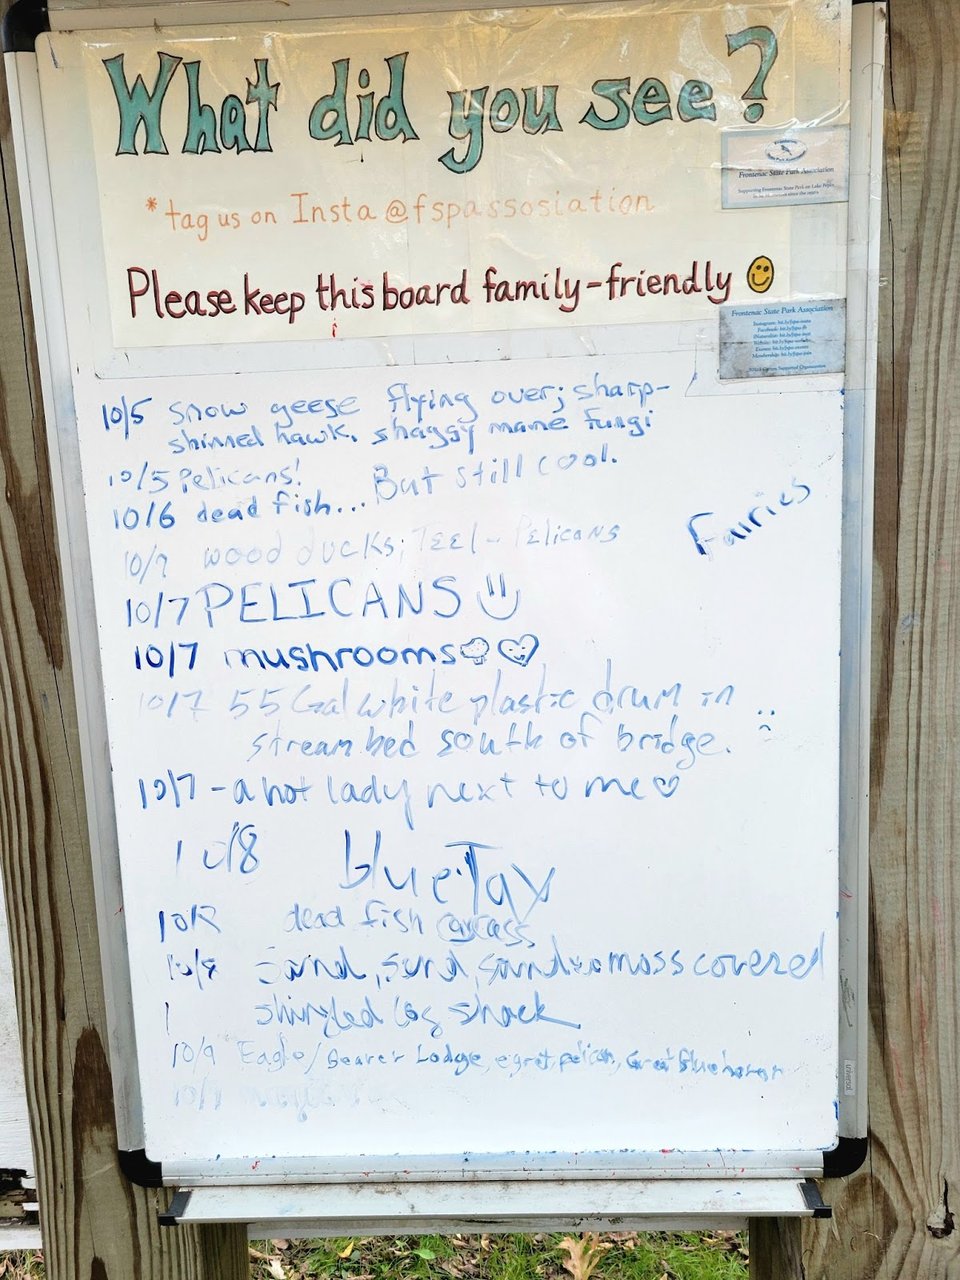 What did you see?
*tag us on Insta @fspassosiation
Please keep this board family-friendly
Frontenac State Park Association
Supporting Frontenac State Park on Lake Pepin
Frontenac State Park Association
10/5 snow geese flying over; sharp-
shinned hawk, shaggy mane fungi
10/5 Pelicans! But still cool.
10/6 dead fish...
Fairies
wood ducks; Teel - Pelicans
10/7 PELICANS
10/7 mushrooms
10/7 55 Gal white plastic drum in
stream bed south of bridge.
10/7 - a hot lady next to me
blueJay
dead fish carcass
10/8 Sand, sand, sand moss covered
shingled log shack
10/9 Eagle/Beaver Lodge, egret, pelican, Great Blue
universal